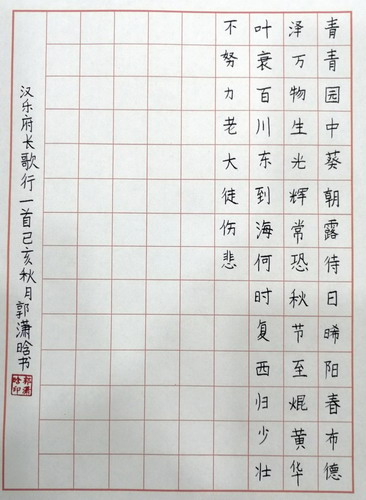 青青园中葵朝露待日晞阳春布德
泽万物生光辉常恐秋节至焜黄华
叶衰百川东到海何时复西归少壮
不努力老大徒伤悲
汉乐府长歌行一首己亥秋月郭潇晗书
郭潇
晗印